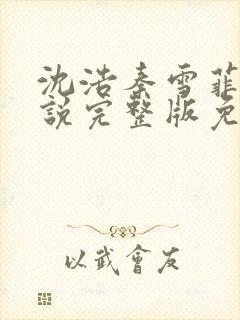 沈浩秦雪菲
說完整版免
以武會友